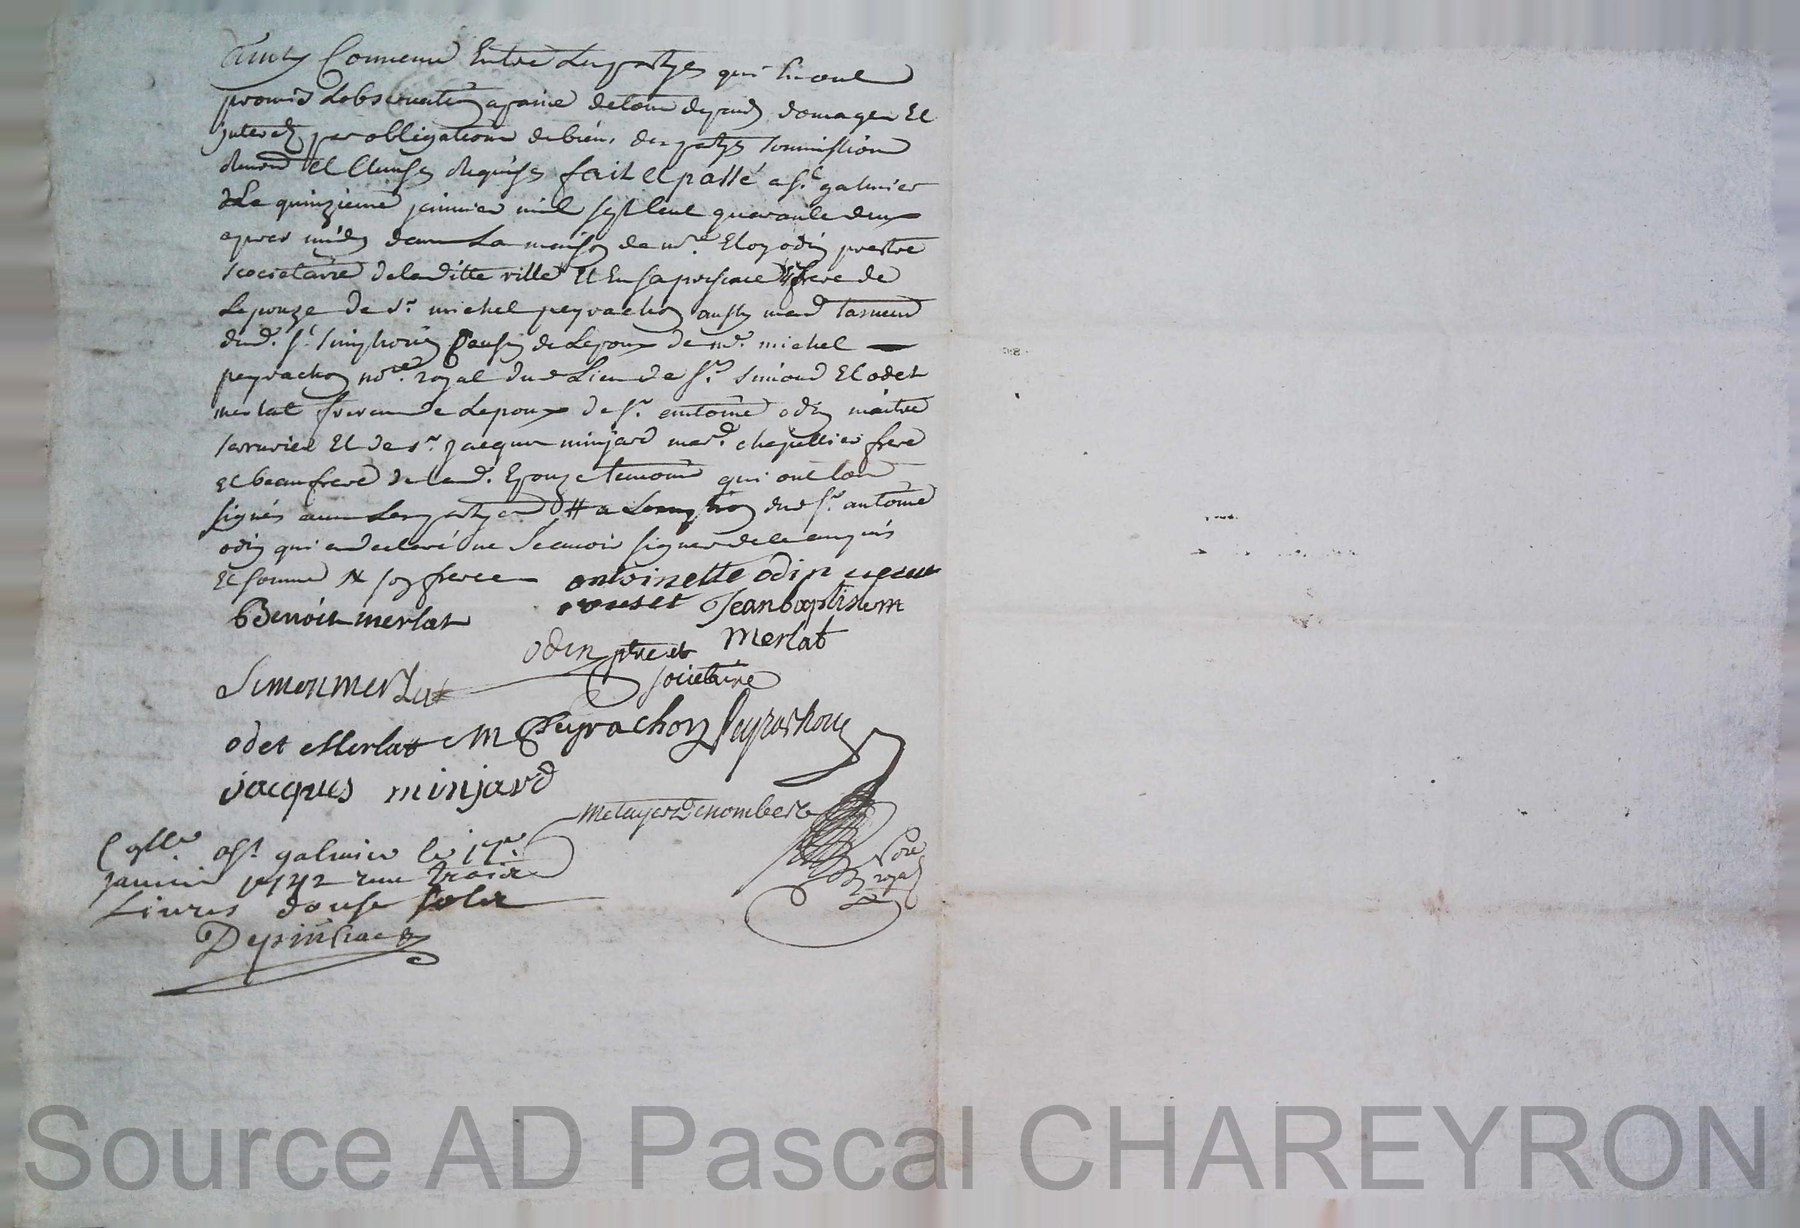 Ainsy Convenu Entre Les partyes qui lui ont
promis Lobservation a paine de tous depends domages Et
interetz par obligations de biens des partyes soumissions
et Clauses Requises fait et passé a St. galmier
Le quinzieme janvier mil sept cent quarante deux
apres midy dans La maison de mre. Eloy odin prestre
societaire de laditte ville Et En sa presance frere de
Lepouze de Sr. michel peyrachon aussy mard taneur
dud. St. simphorien Cousin de Lepoux de me. michel
peyrachon nore. royal dud Lieu de Sr. simond Et odet
merlat freres de Lepoux de Sr. antoine odin maitre
serrurier Et de sr. jacques minjard mard. chapellier frere
et beaufrere de lad. Epouze temoins qui ont
signés avec Les partyes # a Lexception dud Sr. antoine
odin qui a declaré ne scavoir signer de ce enquis
Et sommé # son frere antoinette odin
Benoit merlat Jean baptiste m
merlat
odin ptre et
societaire
Simon merlat
odet Merlat M Peyrachon Peyrachon
jacques minjard
Metayer Denombert
Nore
royal
Collé a St galmier le 17e.
janvier 1742 reçu Treize
Livres douse sols
Depinhac
Source AD Pascal CHAREYRON